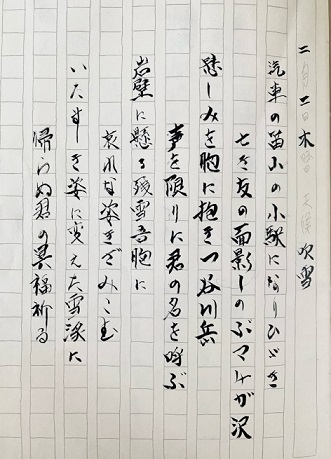 二月二日 木 吹雪
汽車の笛山の小駅になりひびき
亡き友の面影しのぶマチガ沢
悲しみを胸に抱きつ谷川岳
声を限りに君の名を呼ぶ
岩壁に懸る残雪吾胸に
哀れな姿きざみこむ
いたましき姿に変えた雪渓に
帰らぬ君の冥福祈る